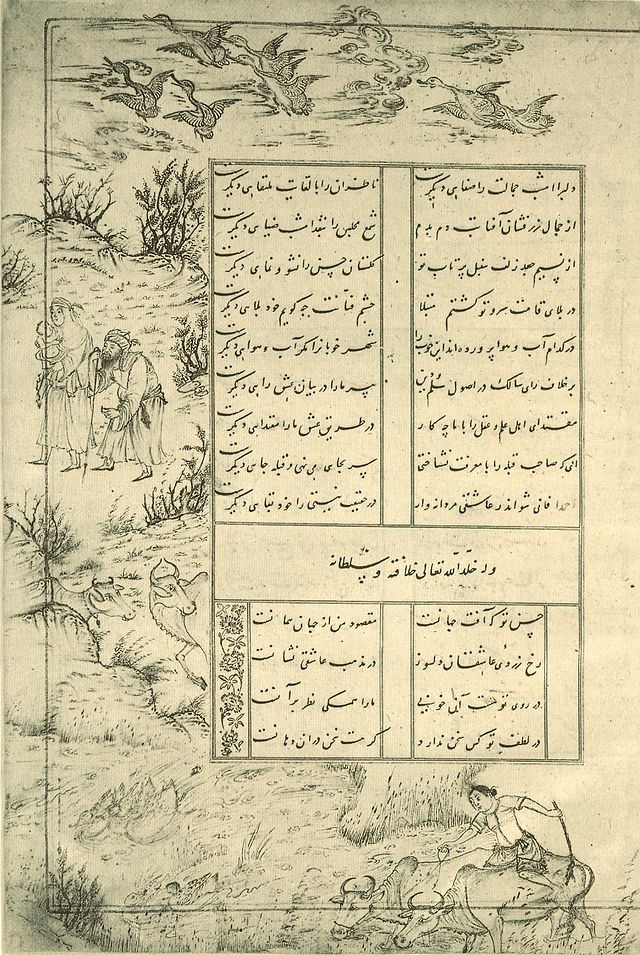 دلبرا امشب جمالت را صفایی دیگرست ناظران را با لقایت ملتقایی دیگرست
از جمال زرفشان آفتابت دم بدم شمع مجلس را امشب ضیایی دیگرست
از نسیم جعد زلف سنبل پرتاب تو گلستان حسن را نشو و نمایی دیگرست
در بلای قامت سرو تو گشتم مبتلا چشم فتانت چه گویم خود بلایی دیگرست
در کدام آب و هوا پرورده‌اند این خوب را شهر خوبان را مگر آب و هوایی دیگرست
بر خلاف رای سالک در اصول علم دین پیر ما را در بیان عشق رایی دیگرست
مقتدای اهل علم و عقل را با ما چه کار در طریق عشق ما را مقتدایی دیگرست
ای که صاحب قبله را با معرفت نشناختی سر بجایی می نهی و قبله جایی دیگرست
احمدا فانی شو اندر عاشقی مردانه وار در حقیقت نیستی را خود بقایی دیگرست
وله خلد الله تعالی خلافته و سلطانه
حسن تو که آفت جهانست مقصود من از جهان همانست
رخ زردی عاشقان دلسوز در مذهب عاشقی نشانست
در روی تو هست آنی ما را همگی نظر بر آنست
در لطف تو کس سخن ندارد گر هست سخن در آن دهانست